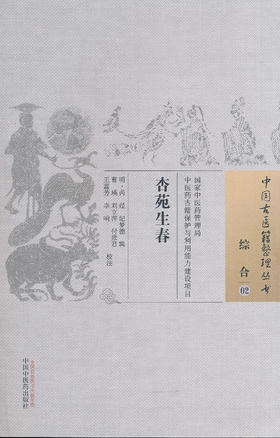 中国古医籍整理丛书
综合
02
国家中医药管理局
中医药古籍保护与利用能力建设项目
杏苑生春
明·芮 经 纪梦德 编
曹 瑛 刘立萍 付世君
李 响
校注
中国中医药出版社